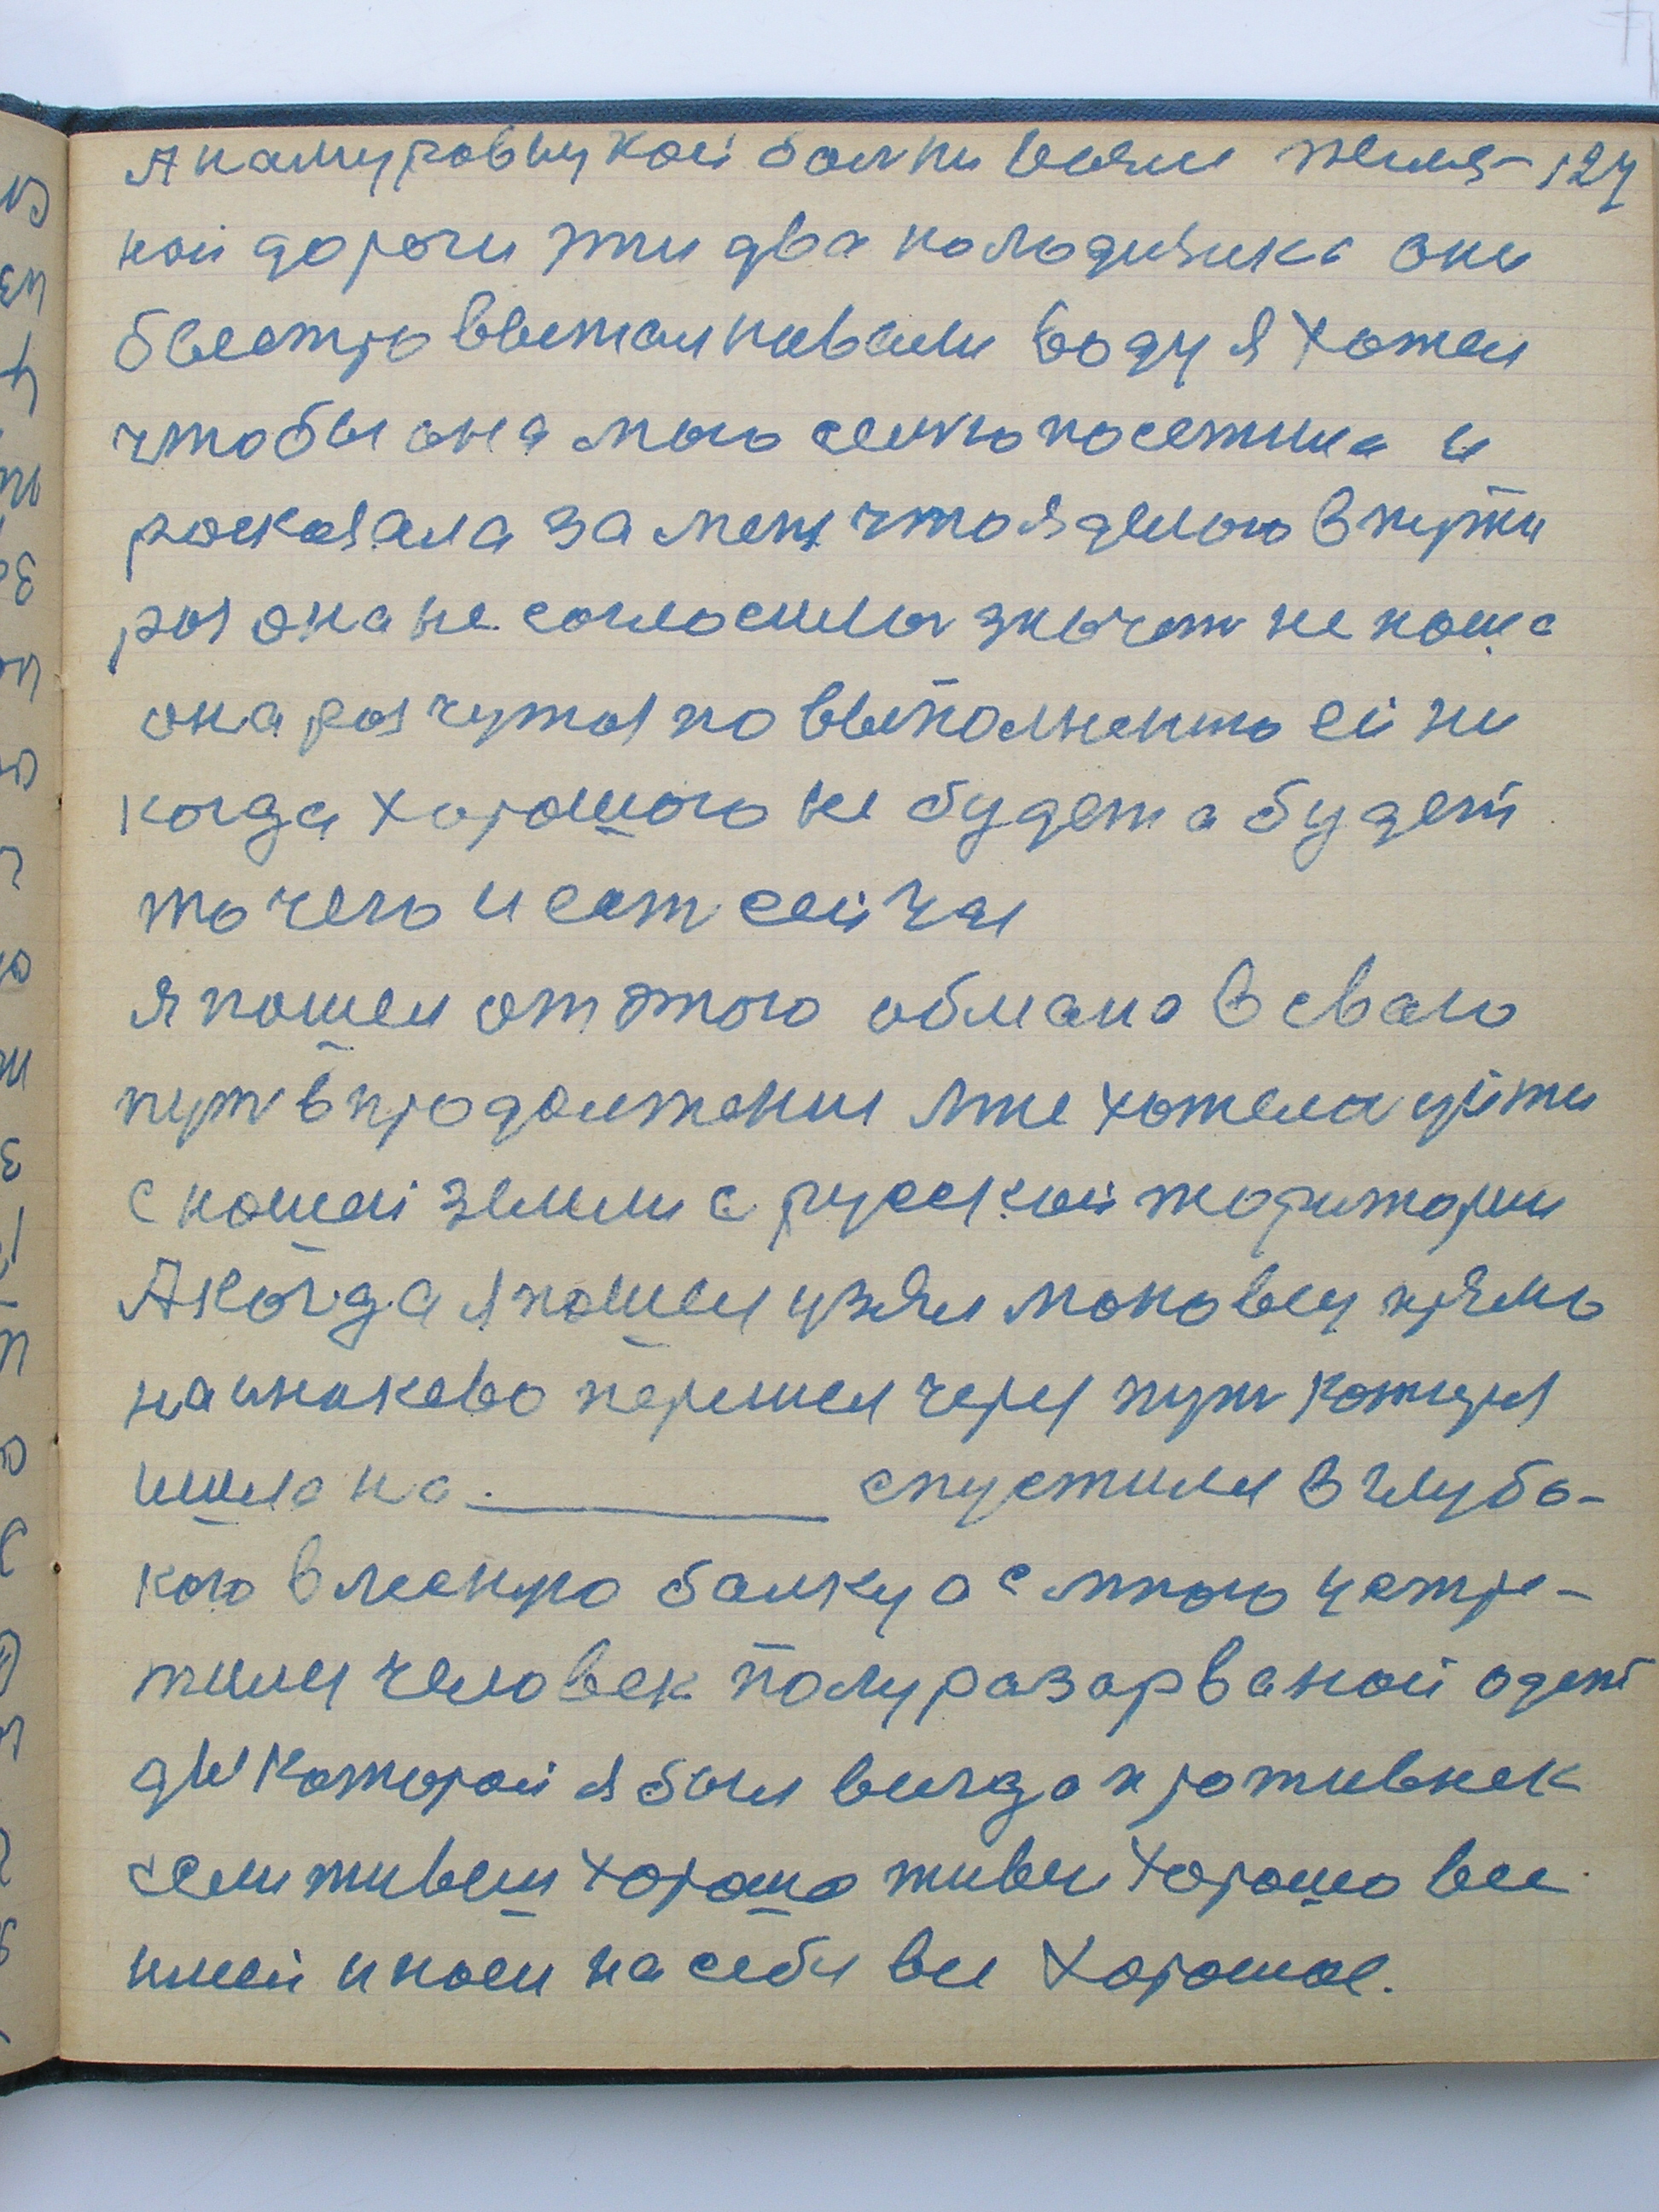 А камуровнукой болни возли желез- 124
ной дороги эти два колодизика они
бвестро выталкивали воду я хотел
чтобы она мою семю посетила и
росказала за меня что я делою в пути
роз она не согласилась значит не наша
она роз чутая по выполненю ей ни
когда хорошого не будет а будет
то чего и ест сейчас
я пошел от этого обмана в сваю
пут в продолжения мне хотелас уйти
с нашей земли с русской ториторие
А когда я пошел узял маковку прямо
на инаково перешел через пут которя
ишла на спустился в глубо-
кою в лесную балку а с мною устре-
тился человек полуразорваной одеж
ды которой я был всигда противнек
если живеш хорошо живи хорошо все
имей и носи на себя все хорошое.